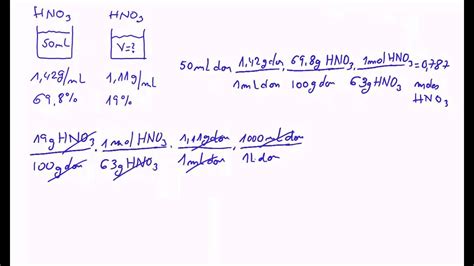 HNO₃ HNO₃
50mL V=?
1,42g/ml 1,11g/ml
69,8% 19%
50ml don · 1,42g don / 1ml don · 69,8g HNO₃ / 100g don · 1mol HNO₃ / 63g HNO₃ = 0,787 moles HNO₃
19g HNO₃ / 100g don · 1mol HNO₃ / 63g HNO₃ · 1,11g don / 1ml don · 1000ml don / 1L don